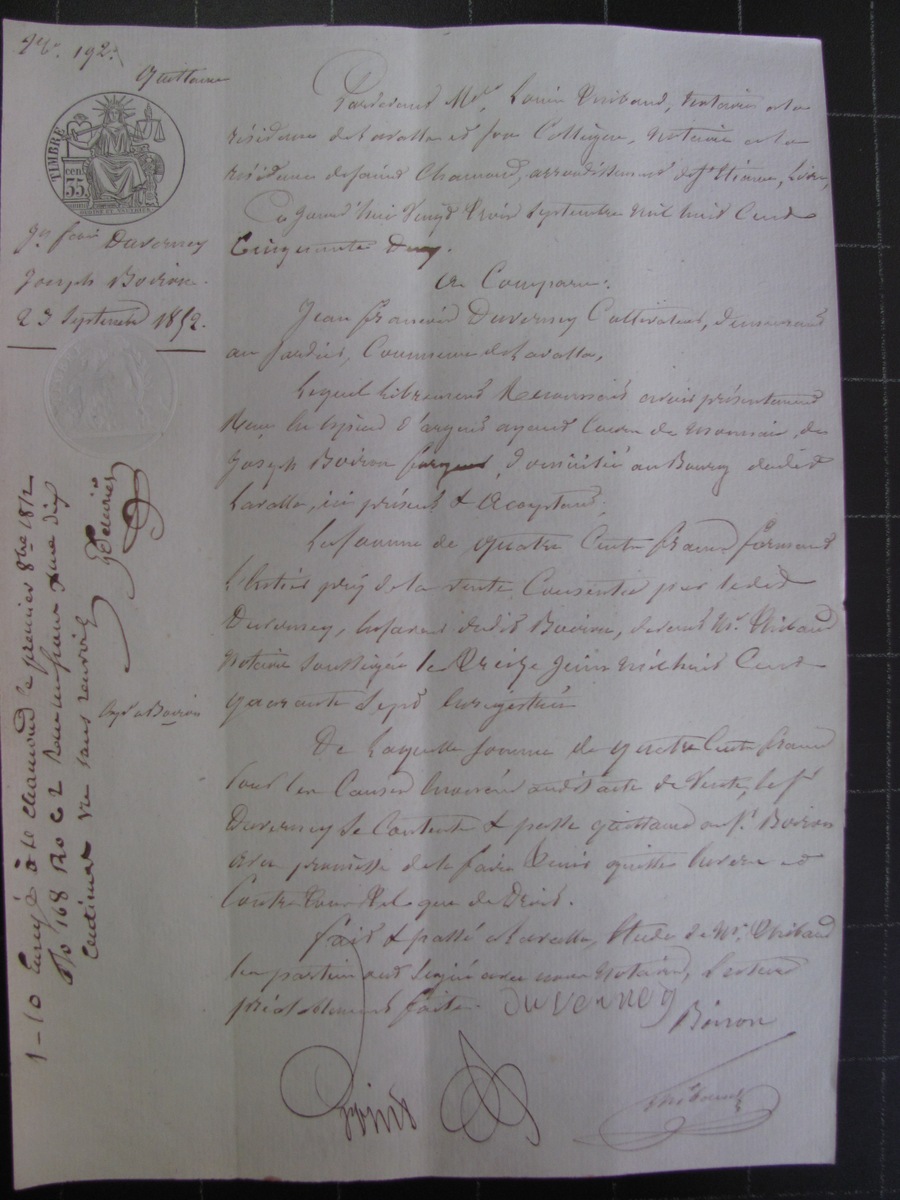 192
Quittance
TIMBRE
cen
35
Jn fcois Duverney
Joseph Boiron
23 Septembre 1852.
Pardevant Me. Louis Thibaud, Notaire à la
résidence de Lavalla et son Collègue, Notaire à la
résidence de saint Chamond, arrondissement de St Etienne, Loire,
Ce Jourd'hui Vingt trois septembre mil huit Cent
Cinquante deux.
a Comparu:
Jean francois Duverney Cultivateur, demeurant
au Commune de Lavalla,
Lequel librement Reconnait avoir présentement
Reçu en espèces d'argent ayant Cours de Monnaie, de
Joseph Boiron domicilié au Bourg dudit
Lavalla, ici présent & acceptant,
La somme de quatre Cents francs formant
l'Entier prix de la vente Consentie par ledit
Duverney, en faveur dudit Boiron, devant Me. Thibaud
Notaire soussigné le treize Juin mil huit Cent
quarante Sept Enregistrée
De Laquelle somme de quatre Cents francs
pour les Causes énoncées audit acte de Vente, le sr
Duverney se Contente & passe quittance au sr. Boiron
avec promesse de le faire tenir quitte envers et
Contre tous tel que de Droit.
fait & passé à Lavalla, Etude de Me. Thibaud
Les parties ont signé avec nous Notaires, Lecture
préalablement faite.
Duverney
Boiron
Thibaud
Expé à Boiron
1-10 Enregé à St Chamond le premier 8bre 1852
fo 168 Ro C 2 Reçu un franc dix
centimes sans renvoi